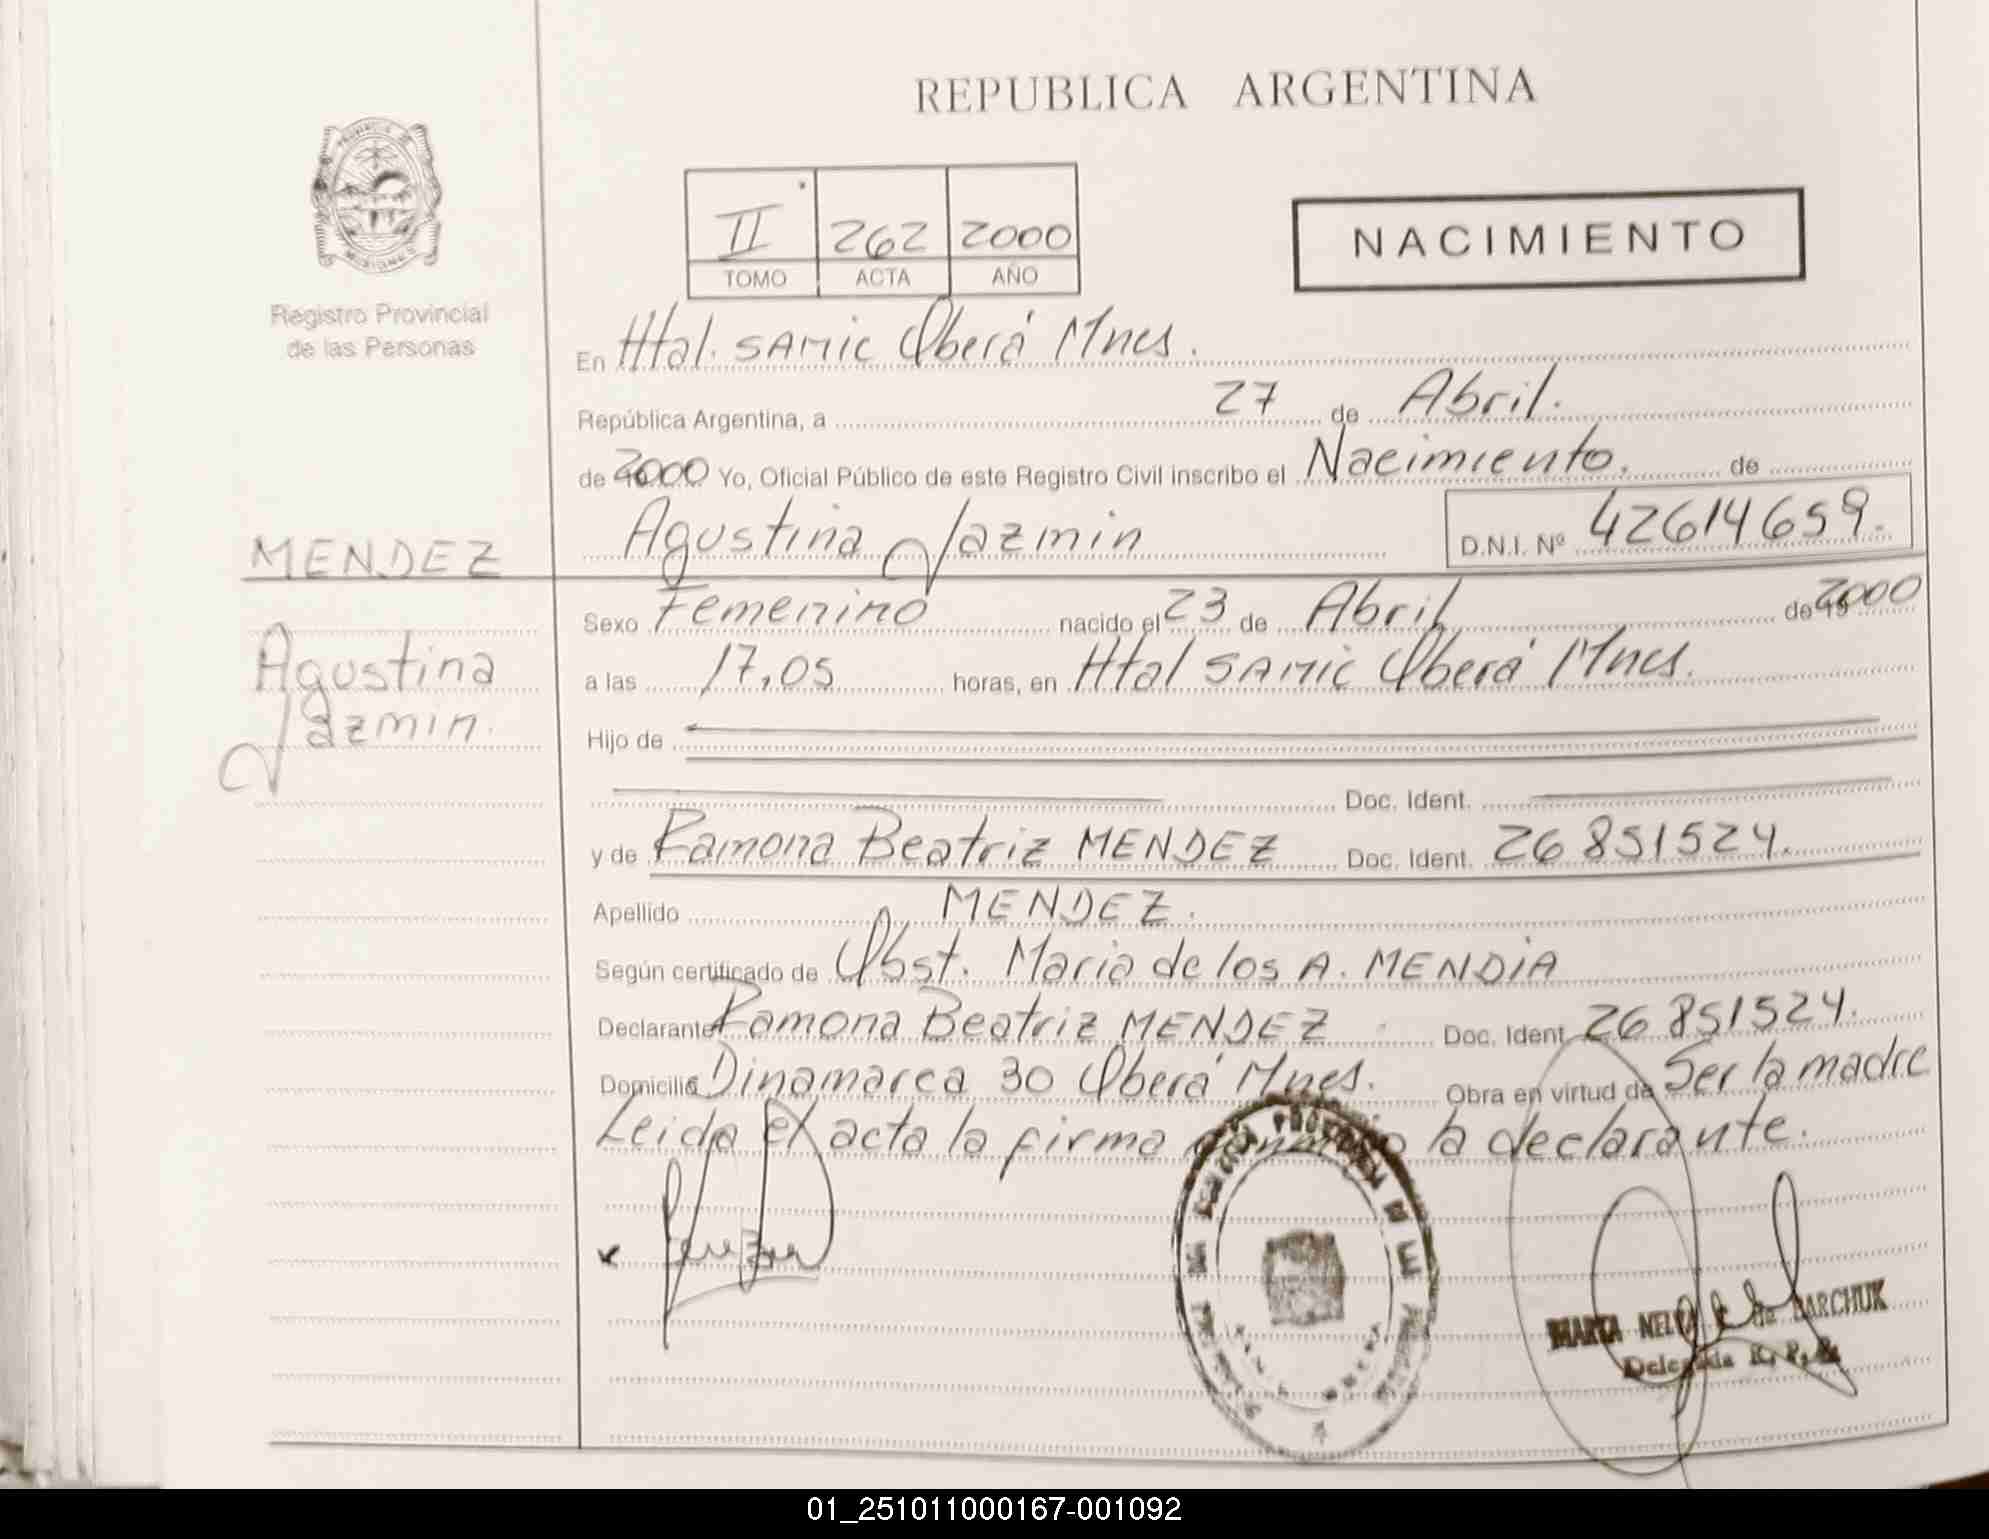 REPUBLICA ARGENTINA
II 262 2000
TOMO ACTA AÑO
NACIMIENTO
Registro Provincial
de las Personas
En Htal. SAMIC Oberá Mnes.
República Argentina, a 27 de Abril.
de 2000 Yo, Oficial Público de este Registro Civil inscribo el Nacimiento. de
Agustina Jazmin D.N.I. Nº 42614659.
MENDEZ
Agustina
Jazmin.
Sexo Femenino nacido el 23 de Abril de 2000
a las 17,05 horas, en Htal SAMIC Oberá Mnes.
Hijo de
Doc. Ident.
y de Ramona Beatriz MENDEZ Doc. Ident. 26851524.
Apellido MENDEZ.
Según certificado de Obst. Maria de los A. MENDIA
Declarante Ramona Beatriz MENDEZ Doc. Ident 26851524.
Domicilio Dinamarca 30 Oberá Mnes. Obra en virtud de Ser la madre
Leida el acta la firma la declarante.
MARTA de
Delegada R. P. P.
01_251011000167-001092